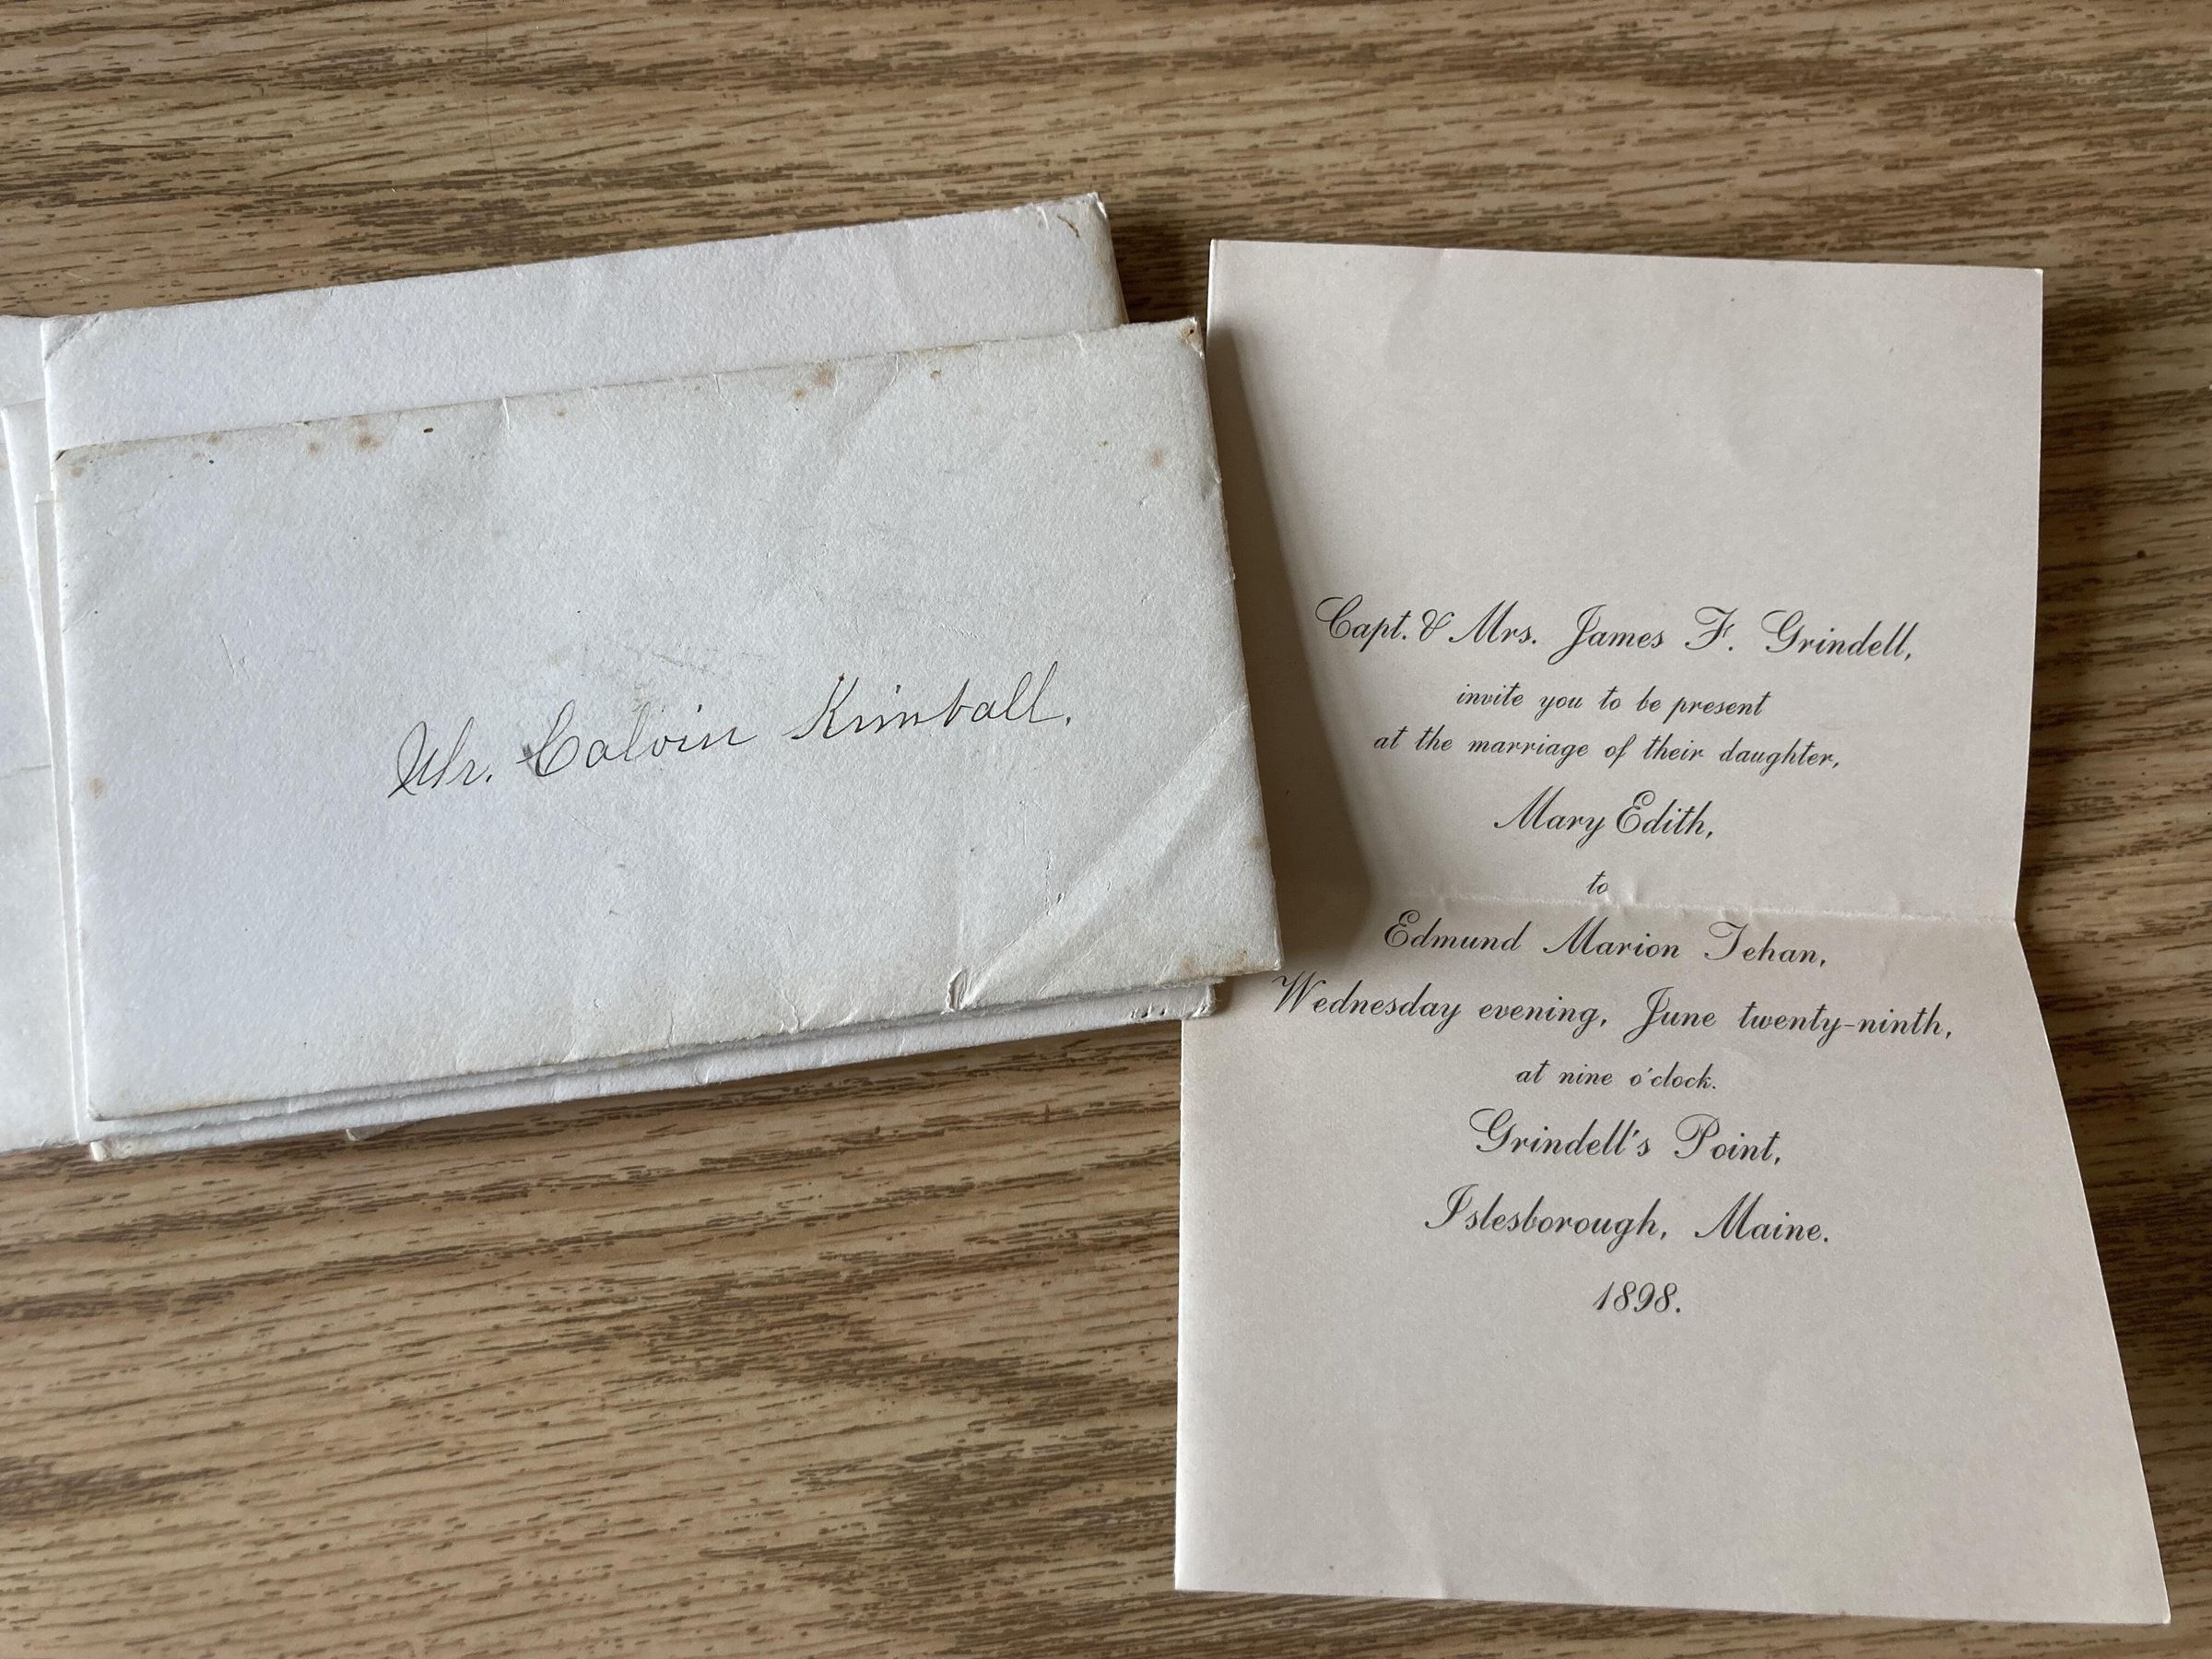 Mr. Calvin Kimball.
Capt. & Mrs. James F. Grindell,
invite you to be present
at the marriage of their daughter,
Mary Edith,
to
Edmund Marion Tehan,
Wednesday evening, June twenty-ninth,
at nine o'clock.
Grindell's Point,
Islesborough, Maine.
1898.